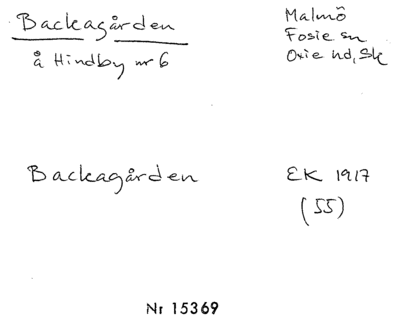 Backagården
Malmö
Fosie sn
å Hindby nr 6
Oxie hd, Sk
Backagården
EK 1917
(55)
Nr 15369